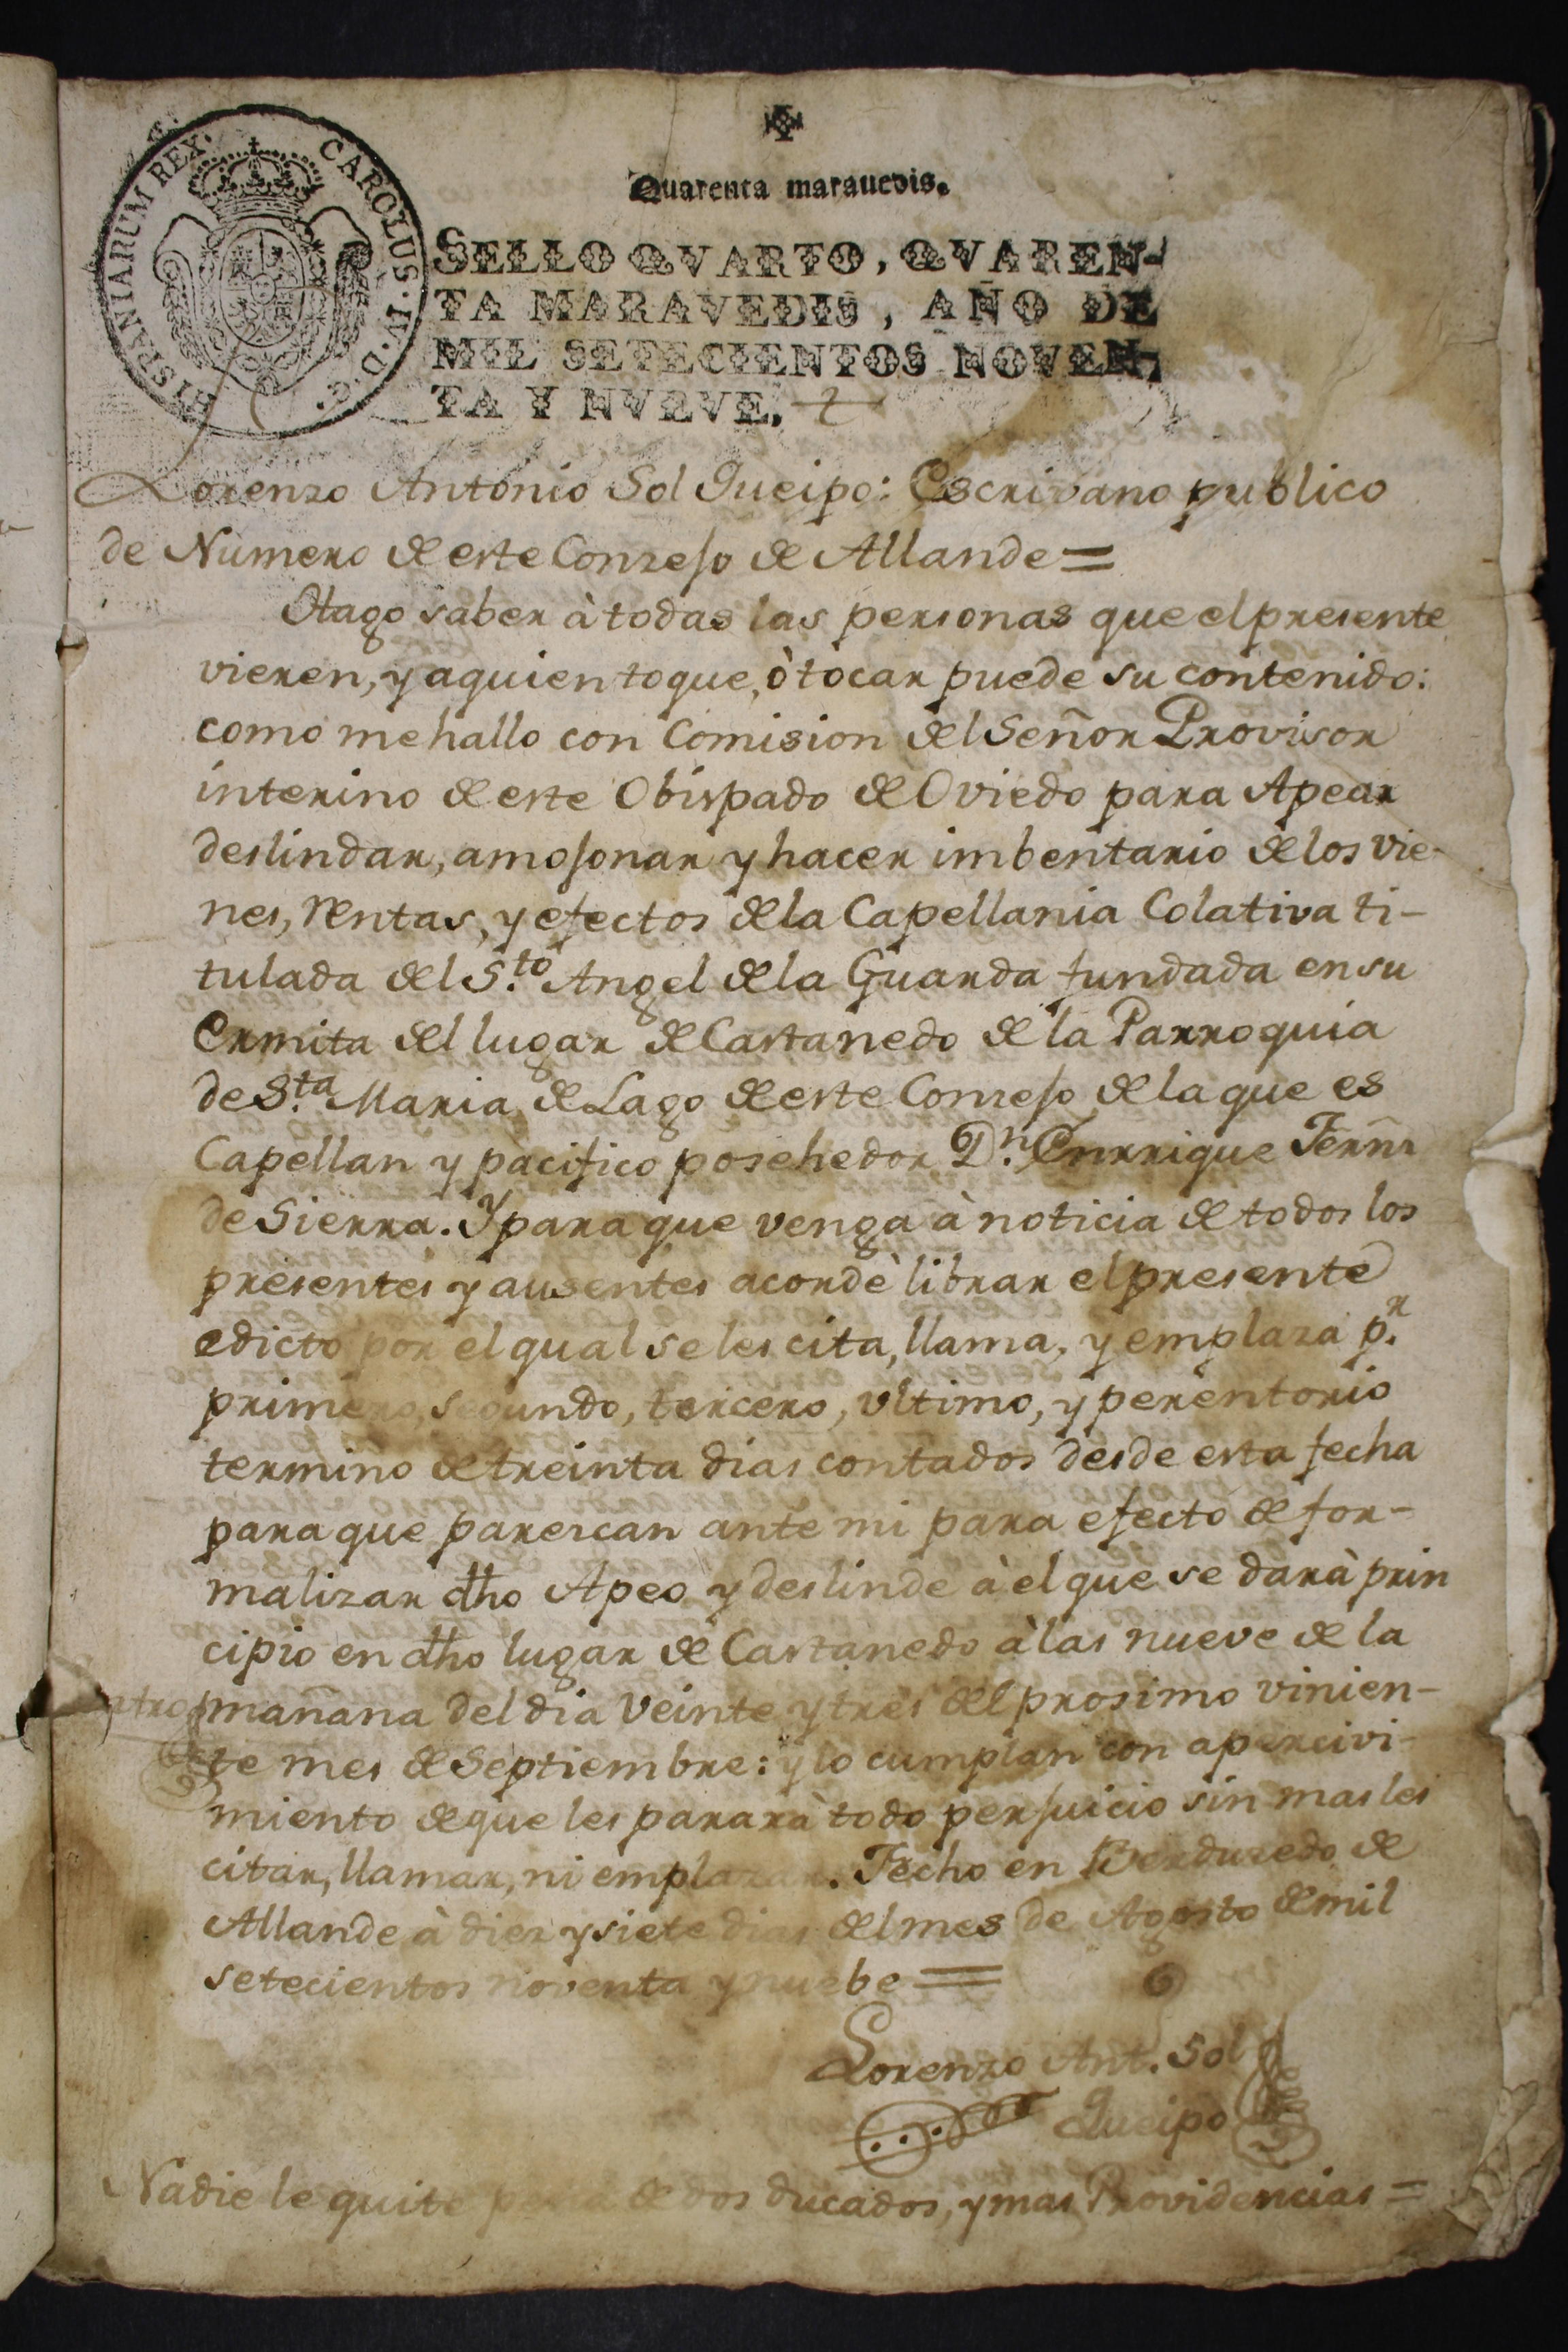 HISPANIARUM REX. CAROLUS·IV·D·G·
Quarenta marauedis.
SELLO QVARTO, QVAREN-
TA MARAVEDIS, AÑO DE
MIL SETECIENTOS NOVEN-
TA Y NVEVE.
Lorenzo Antonio Sol Queipo: Escrivano publico
de Numero de este Conzejo de Allande =
Hago saber à todas las personas que el presente
vieren, y aquien toque, ò tocar puede su contenido:
como me hallo con Comision del Señor Provisor
interino de este Obispado de Oviedo para Apear
deslindar, amojonar y hacer imbentario de los vie-
nes, rentas, y efectos de la Capellania Colativa ti-
tulada del S.to Angel de la Guarda fundada en su
Ermita del lugar de Castanedo de la Parroquia
de S.ta Maria de Lago de este Conzejo de la que es
Capellan y pacifico posehedor D.n Enrrique Fernz
de Sierra. Y para que venga à noticia de todos los
presentes y ausentes acordè librar el presente
edicto por el qual se les cita, llama, y emplaza p.r
primero, segundo, tercero, ultimo, y perentorio
termino de treinta dias contados desde esta fecha
para que parezcan ante mi para efecto de for-
malizar dho Apeo y deslinde à el que se darà prin
cipio en dho lugar de Castanedo à las nueve de la
mañana del dia veinte y tres del prosimo vinien-
te mes de Septiembre: y lo cumplan con apercivi-
miento de que les pararà todo perjuicio sin mas les
citar, llamar, ni emplazar. Fecho en Berduzedo de
Allande à diez y siete dias del mes de Agosto de mil
setecientos noventa y nuebe =
Lorenzo Ant. Sol
Queipo
Nadie le quite pena de dos ducados, y mas Providencias =